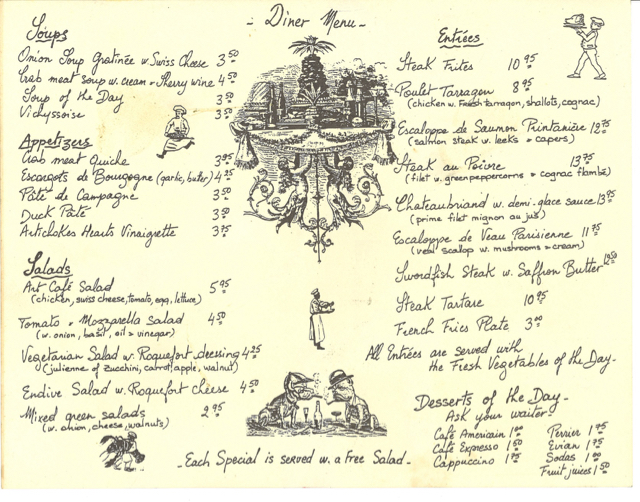 - Diner Menu -
Soups
Onion Soup Gratinée w. Swiss Cheese 3.50
Crab meat soup w. cream & Sherry wine 4.50
Soup of the Day 3.50
Vichyssoise 3.50
Appetizers
Crab meat Quiche 3.95
Escargots de Bourgogne (garlic, butter) 4.25
Pâté de Campagne 3.50
Duck Pâté 3.50
Artichokes Hearts Vinaigrette 3.75
Salads
Art Café Salad 5.95
(chicken, swiss cheese, tomato, egg, lettuce)
Tomato & Mozzarella Salad 4.50
(w. onion, basil, oil & vinegar)
Vegetarian Salad w. Roquefort dressing 4.25
(julienne of zucchini, carrot, apple, walnut)
Endive Salad w. Roquefort Cheese 4.50
Mixed green salads 2.95
(w. onion, cheese, walnuts)
Entrées
Steak Frites 10.95
Poulet Tarragon 8.95
(chicken w. Fresh tarragon, shallots, cognac)
Escaloppe de Saumon Printanière 12.75
(salmon steak w. leeks & capers)
Steak au Poivre 13.75
(filet w. green peppercorns & cognac flambé)
Chateaubriand w. demi-glace sauce 13.95
(prime filet mignon au jus)
Escaloppe de Veau Parisienne 11.75
(veal scallop w. mushrooms & cream)
Swordfish Steak w. Saffron Butter
Steak Tartare 10.95
French Fries Plate 3.00
All Entrées are served with
the Fresh Vegetables of the Day-
Desserts of the Day-
Ask your waiter-
Café Americain 1.00 Perrier 1.75
Café Expresso 1.50 Evian 1.75
Cappuccino 1.75 Sodas 1.00
Fruit juices 1.50
- Each Special is served w. a Free Salad -